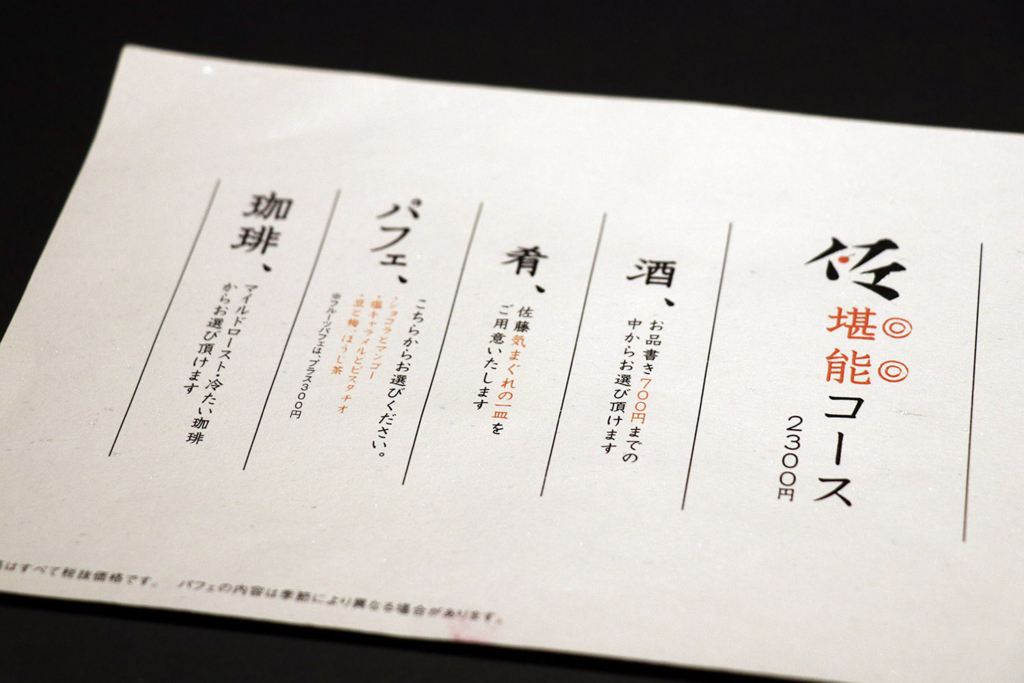 佐
堪能コース
2300円
酒、
お品書き700円までの
中からお選び頂けます
肴、
佐藤気まぐれの一皿を
ご用意いたします
パフェ、
こちらからお選びください。
・ショコラとマンゴー
・塩キャラメルとピスタチオ
・豆と梅、ほうじ茶
※フルーツパフェは、プラス300円
珈琲、
マイルドロースト・冷たい珈琲
からお選び頂けます
はすべて税抜価格です。 パフェの内容は季節により異なる場合があります。